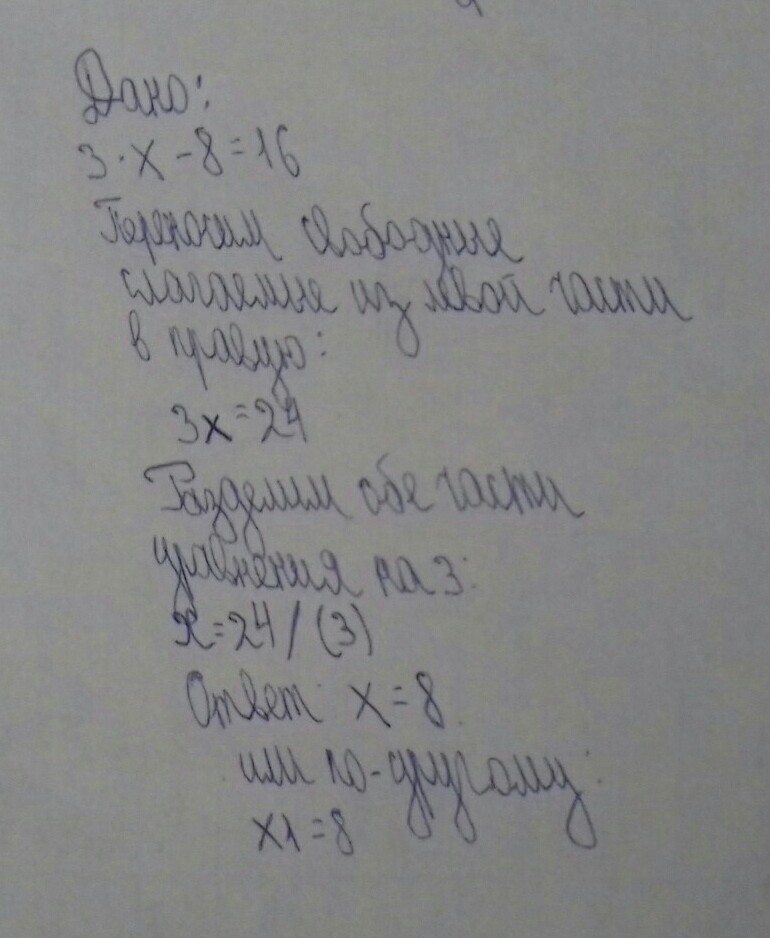 Дано:
3·x-8=16
Переносим свободные
слагаемые из левой части
в правую:
3x=24
Разделим обе части
уравнения на 3:
x=24/(3)
Ответ: x=8
или по-другому:
x1=8